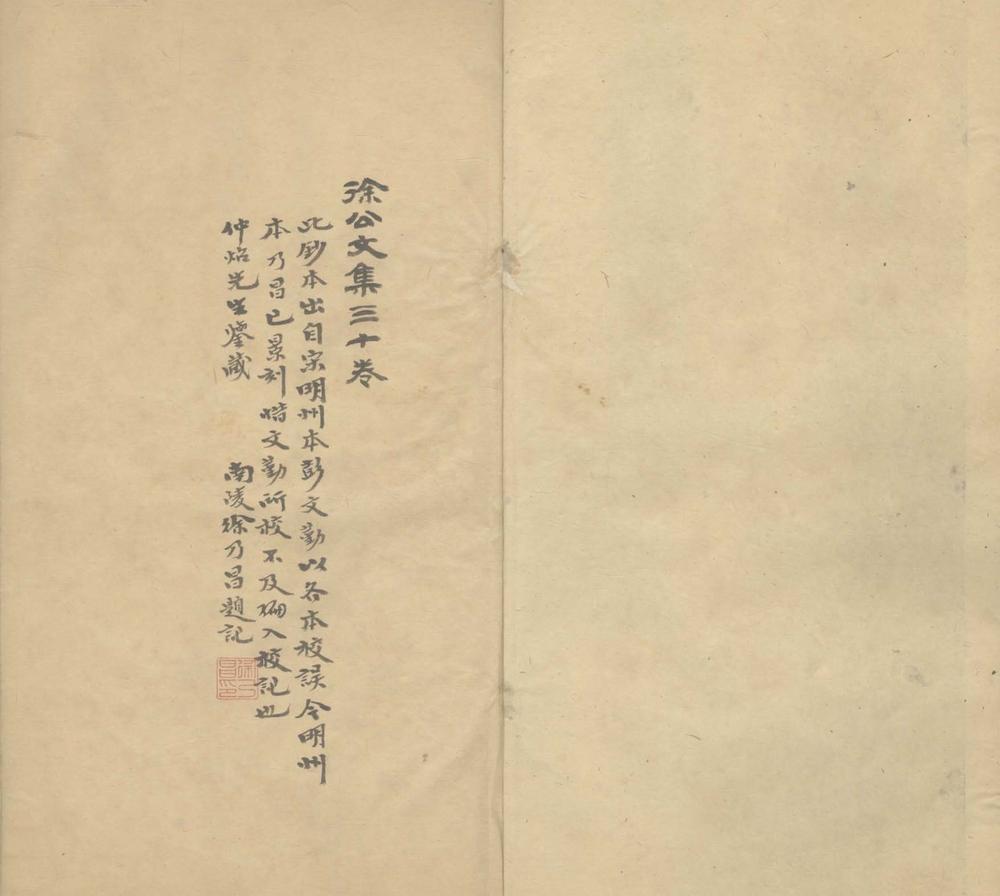 徐公文集三十卷
此鈔本出自宋明州本彭文勤以各本校誤今明州
本乃昌已景刻惜文勤所校不及㓨入校記也
仲炤先生鑒藏
南陵徐乃昌題記
徐乃昌印